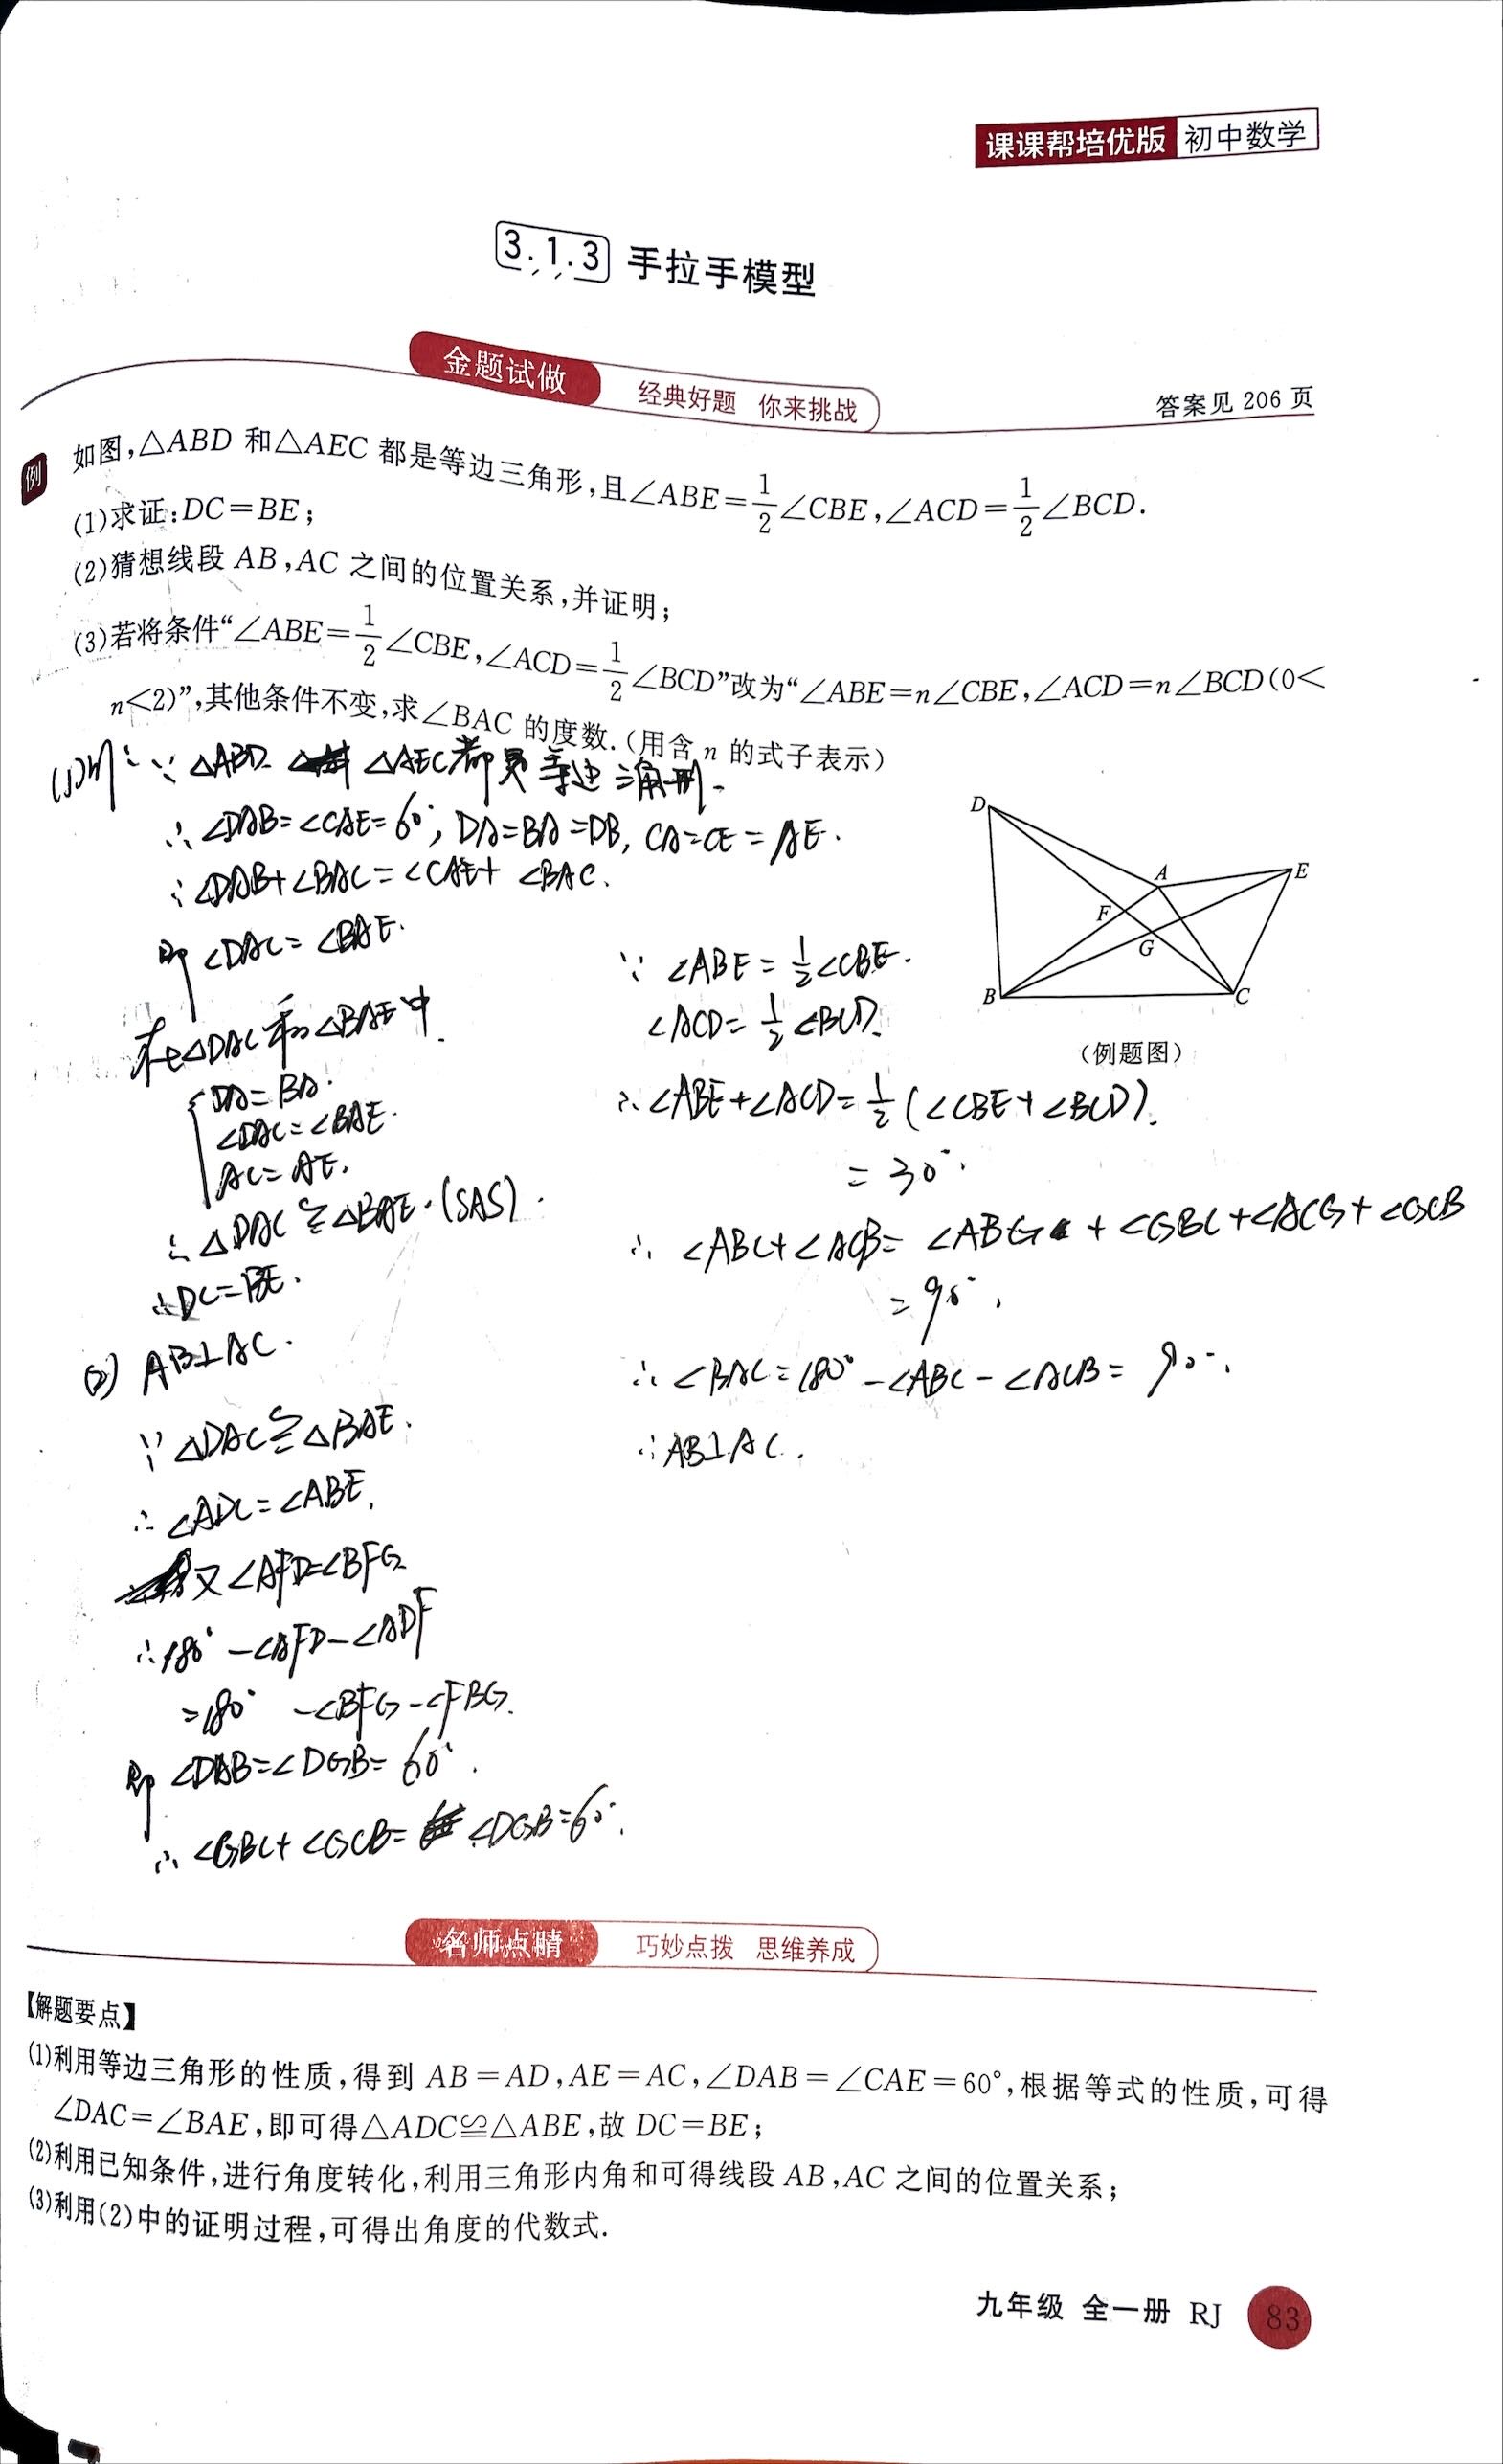 课课帮培优版 初中数学
3.1.3 手拉手模型
金题试做 经典好题 你来挑战 答案见 206 页
例 如图,△ABD 和△AEC 都是等边三角形,且∠ABE=1/2∠CBE,∠ACD=1/2∠BCD.
(1)求证:DC=BE;
(2)猜想线段 AB,AC 之间的位置关系,并证明;
(3)若将条件“∠ABE=1/2∠CBE,∠ACD=1/2∠BCD”改为“∠ABE=n∠CBE,∠ACD=n∠BCD(0<
n<2)”,其他条件不变,求∠BAC 的度数.(用含 n 的式子表示)
∵ △ABD △AEC都是等边三角形.
∴ ∠DAB=∠CAE=60°, DA=BA=DB, CA=CE=AE.
∴ ∠DAB+∠BAC=∠CAE+∠BAC.
即 ∠DAC=∠BAE.
在△DAC和△BAE中.
DA=BA.
∠DAC=∠BAE.
AC=AE.
∴ △DAC≌△BAE.(SAS).
∴DC=BE.
(2) AB⊥AC.
∵ △DAC≌△BAE.
∴ ∠ADC=∠ABE.
又∠AFD=∠BFG.
∴180°-∠AFD-∠ADF
=180°-∠BFG-∠FBG.
即 ∠DAB=∠DGB=60°.
∴ ∠GBC+∠GCB= ∠DGB=60°.
∵ ∠ABE=1/2∠CBE.
∠ACD=1/2∠BCD.
∴ ∠ABE+∠ACD=1/2(∠CBE+∠BCD).
=30°.
∴ ∠ABC+∠ACB=∠ABG+∠GBC+∠ACG+∠GCB
=90°.
∴ ∠BAC=180°-∠ABC-∠ACB=90°.
∴AB⊥AC.
D
A
E
F
G
B
C
(例题图)
名师点睛 巧妙点拨 思维养成
【解题要点】
(1)利用等边三角形的性质,得到 AB=AD,AE=AC,∠DAB=∠CAE=60°,根据等式的性质,可得
∠DAC=∠BAE,即可得△ADC≌△ABE,故 DC=BE;
(2)利用已知条件,进行角度转化,利用三角形内角和可得线段 AB,AC 之间的位置关系;
(3)利用(2)中的证明过程,可得出角度的代数式.
九年级 全一册 RJ 83